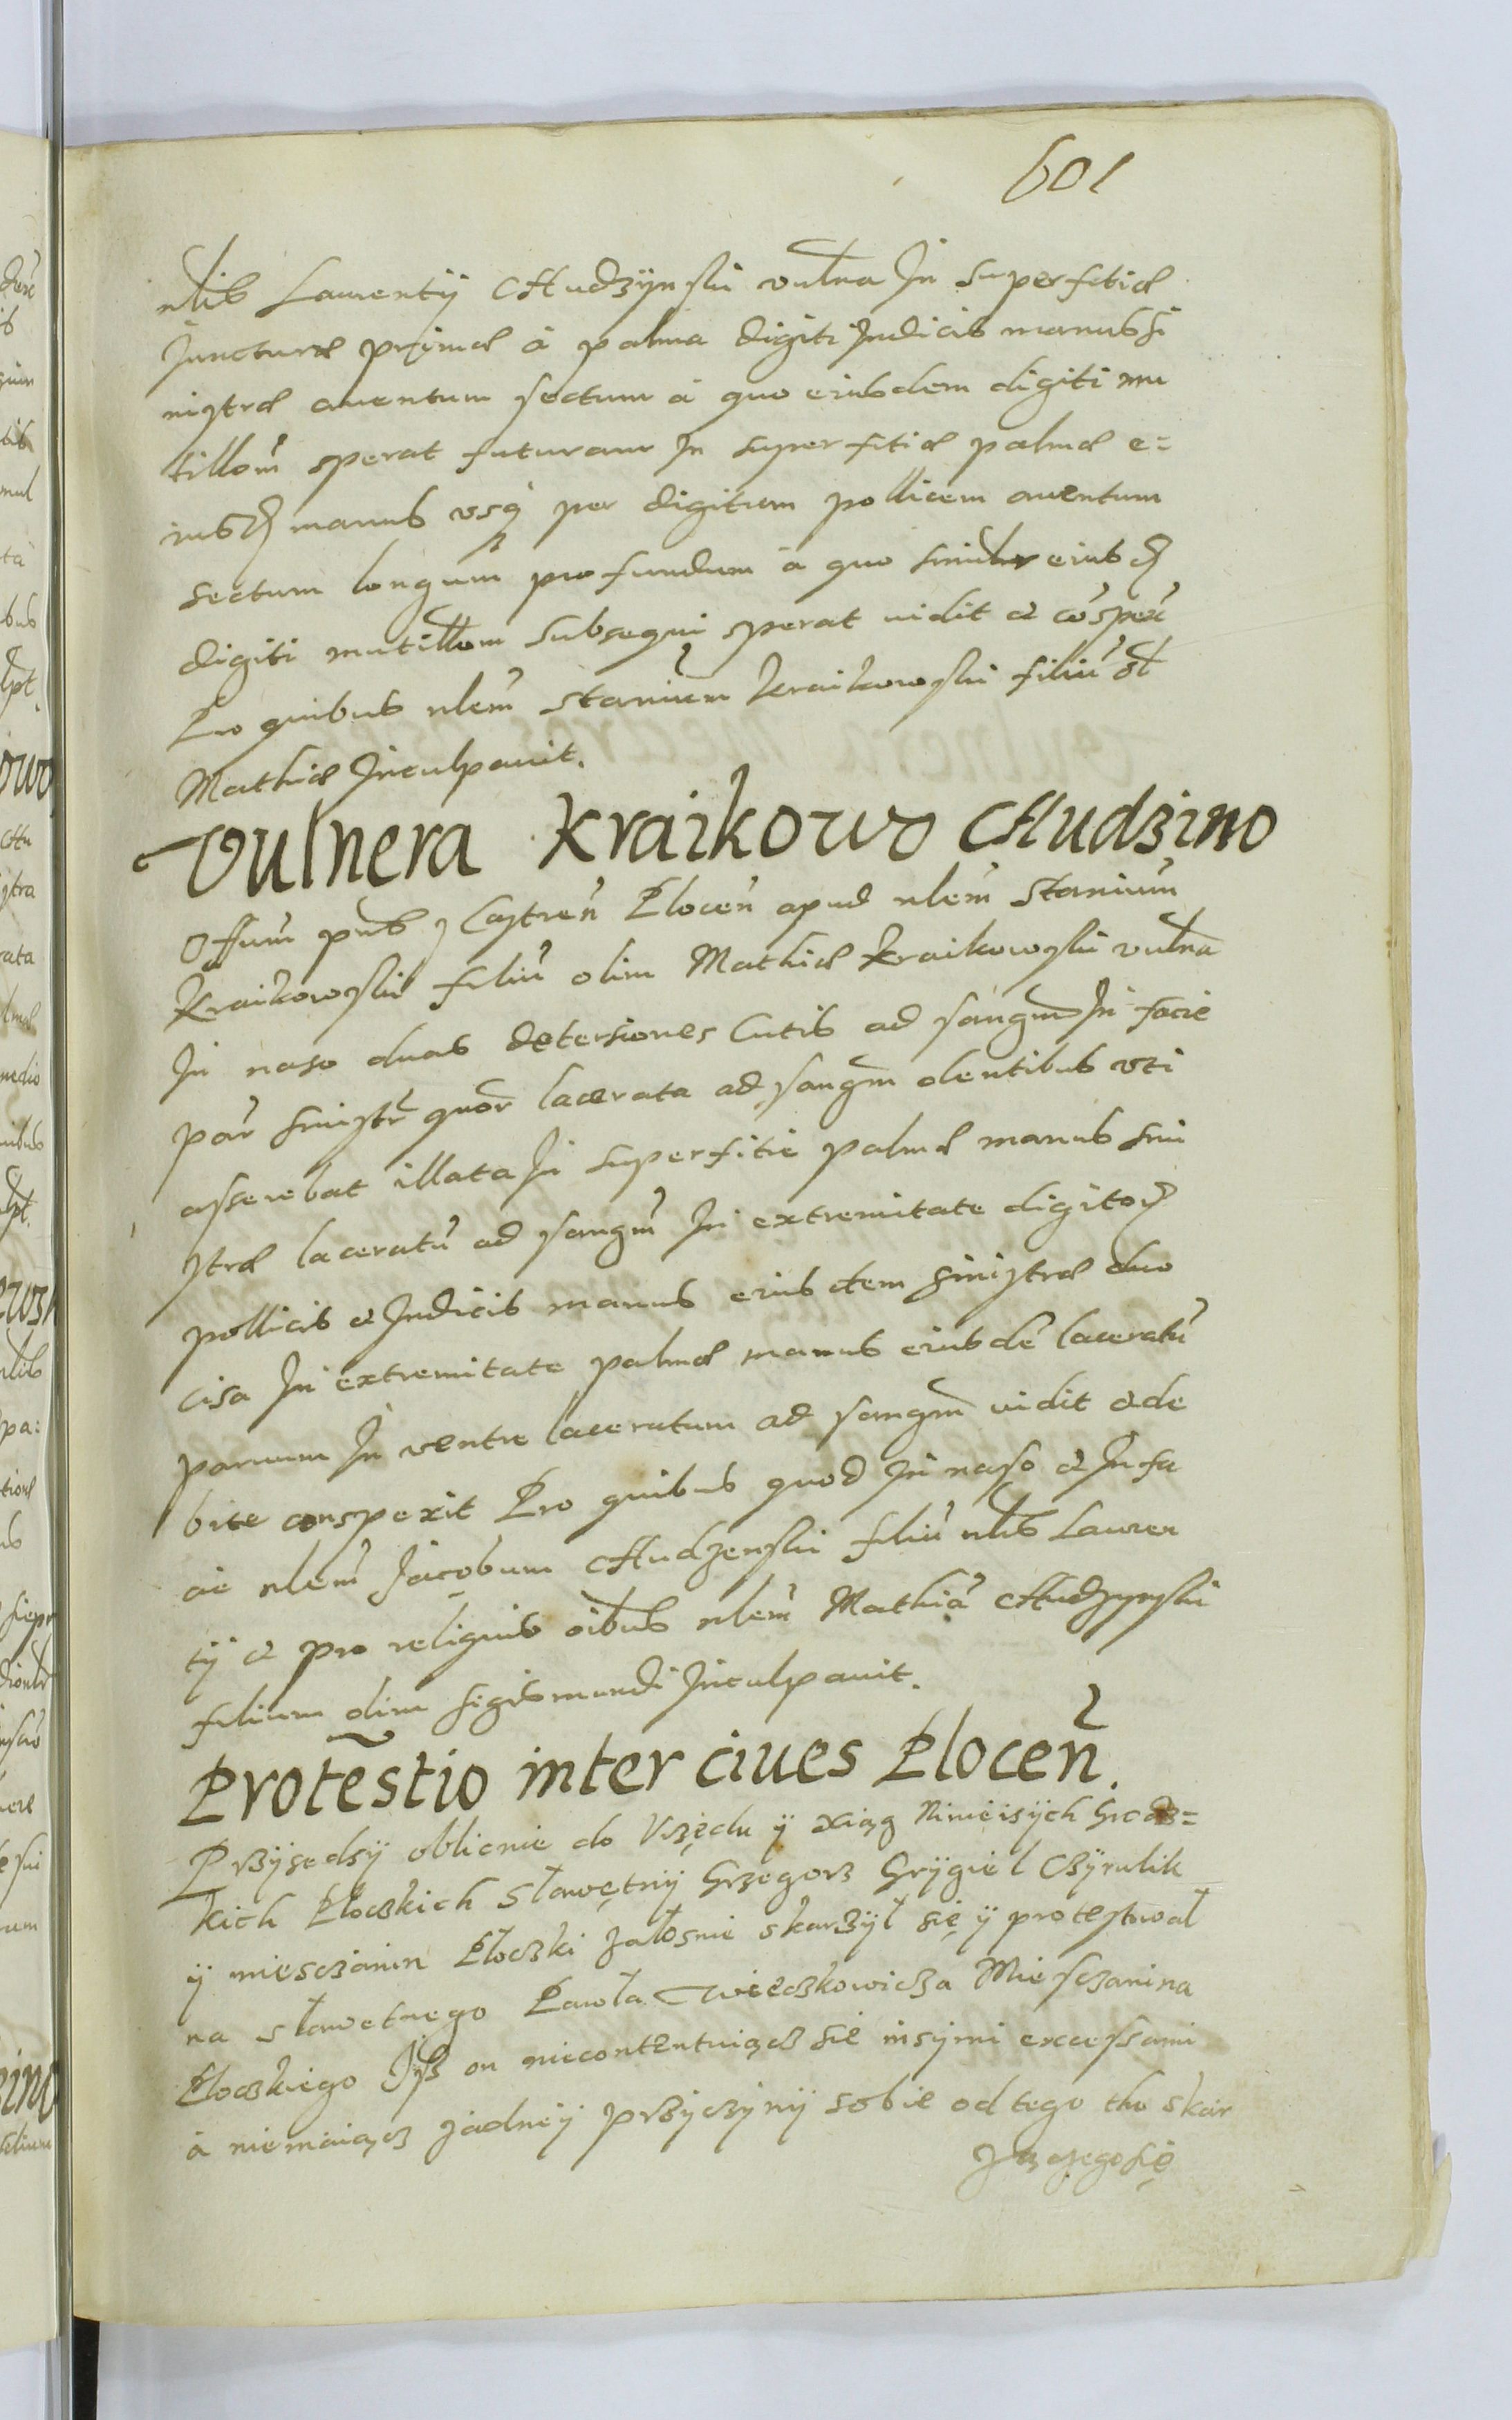 601
nlis Laurentij Chudzÿnski vulna In superfitiae
Juncturae primae á palma digiti Judicis manus si
nistrae cruentum sectum á quo eiusdem digiti mu
tillom̃ sperat futuram In superfitiae palmae e=
iusd manus vsq per digitum pollicem cruentum
sectum longum profundum á quo similr eiusd
digiti mutillom subsequi sperat vidit et cõspex̃
Pro quibus nlem̃ Staniũm Kraikowski filiũ ol
Mathiae Jnculpauit.
Vulnera Kraikowo Chudzino
Offium pns Castren̄ Plocen̄ apud nlem̃ Staniũm
Kraikowski filiũ olim Mathiae Kraikowski vulna
In naso duas detersiones Cutis ad sangm̃ In facie
par sinistr̃ quor̃ lacerata ad sangm̃ dentibus vti
asserebat illata In superfitie palmae manus sini
strae laceratũ ad sangm̃ In extremitate digitor
pollicis et Judicis manus eiusdem sinistrae duo
cisa In extremitate palmae manus eiusdẽ laceratũ
paruum In ventre laceratum ad sangm̃ vidit et de
bite conspexit Pro quibus quod In naso et In fa
cie nlem̃ Jacobum Chudzenski filiũ nlis Lauren
tÿ et pro reliquis oĩbus nlem̃ Mathiã Chudzynski
filium olim Sigismundi Jnculpauit.
Protẽstio inter ciues Plocen̄.
Przÿsedsÿ oblicnie do Vrzędu ÿ xiąg Ninieisÿch Grodz=
kich Płoczkich Sławętnÿ Grzegorz Grÿgiel Czÿrulik
ÿ miesczanin Płoczki załosnie skarzÿł się ÿ protestował
na sławetnego Pawła Cwieczkowicza Miesczanina
Płoczkiego Jsz on niecontentuiącz się insÿmi excessami
a niemaiącz zadneÿ przÿczÿnÿ sobie od tego tho skar
zączego się